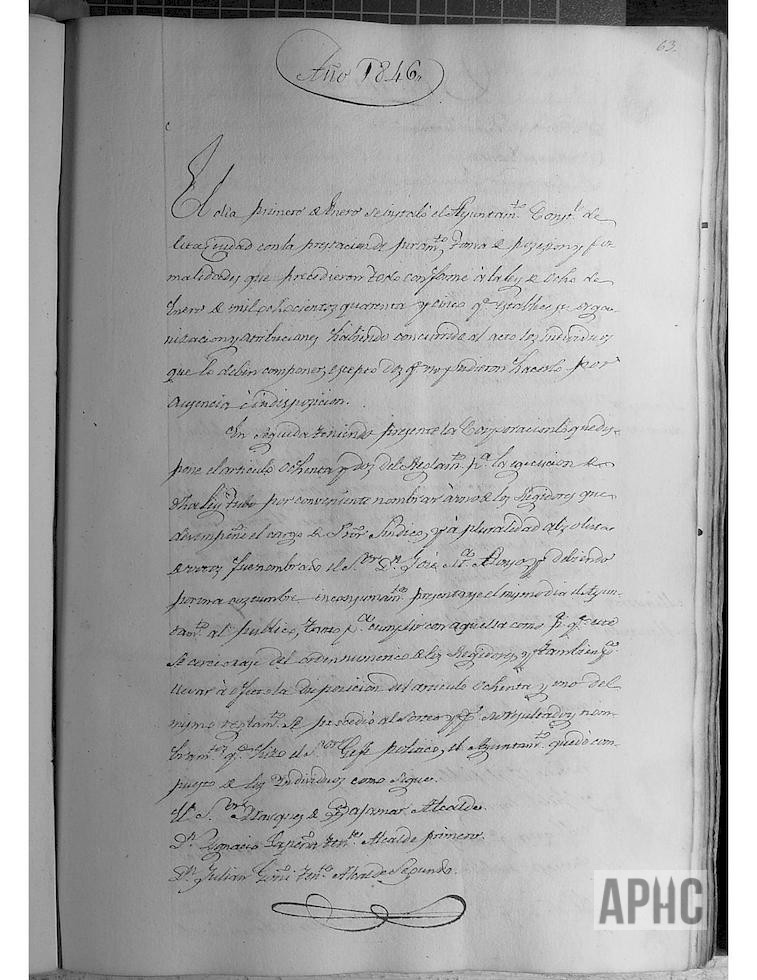 63.
Año 1846,,
El dia primero de Enero se instaló el Ayuntam.to Const.l de
esta Ciudad con la prestacion de juram.to, toma de posesion y for
malidades que precedieron todo conforme à la ley de Ocho de
Enero de mil ochocientos quarenta y cinco q.e establece su orga-
nizacion y atribuciones, habiendo concurrido al acto los individuos
que lo deben componer, escepto dos q.e no pudieron hacerlo por
ausencia è indisposicion.
En seguida teniendo presente la Corporacion lo que dis-
pone el articulo Ochenta y dos del Reglam.to p.a la egecucion de
dha ley, tubo por conveniente nombrar à uno de los Regidores que
desempeñe el cargo de Pror. Sindico, y à pluralidad absoluta
de votos fue nombrado el S.or D.n José M.a y debiendo
por una costumbre presentarse el mismo dia el Ayun-
tam.to al publico, tanto p.a cumplir con aquella como p.a q.e este
se cerciorase del orden numerico de los Regidores, y tambien p.a
llevar à efecto la disposicion del articulo Ochenta y uno del
mismo reglam.to se procedió al sorteo, y p.r su resultado, y nom-
bram.tos q.e hizo el S.or Gefe politico, el Ayuntam.to quedó com-
puesto de los Individuos como sigue.
S.or Marques de Alcalde.
D.n Ignacio ten.te Alcalde primero.
D.n Julian ten.te Alcalde Segundo.
APHC